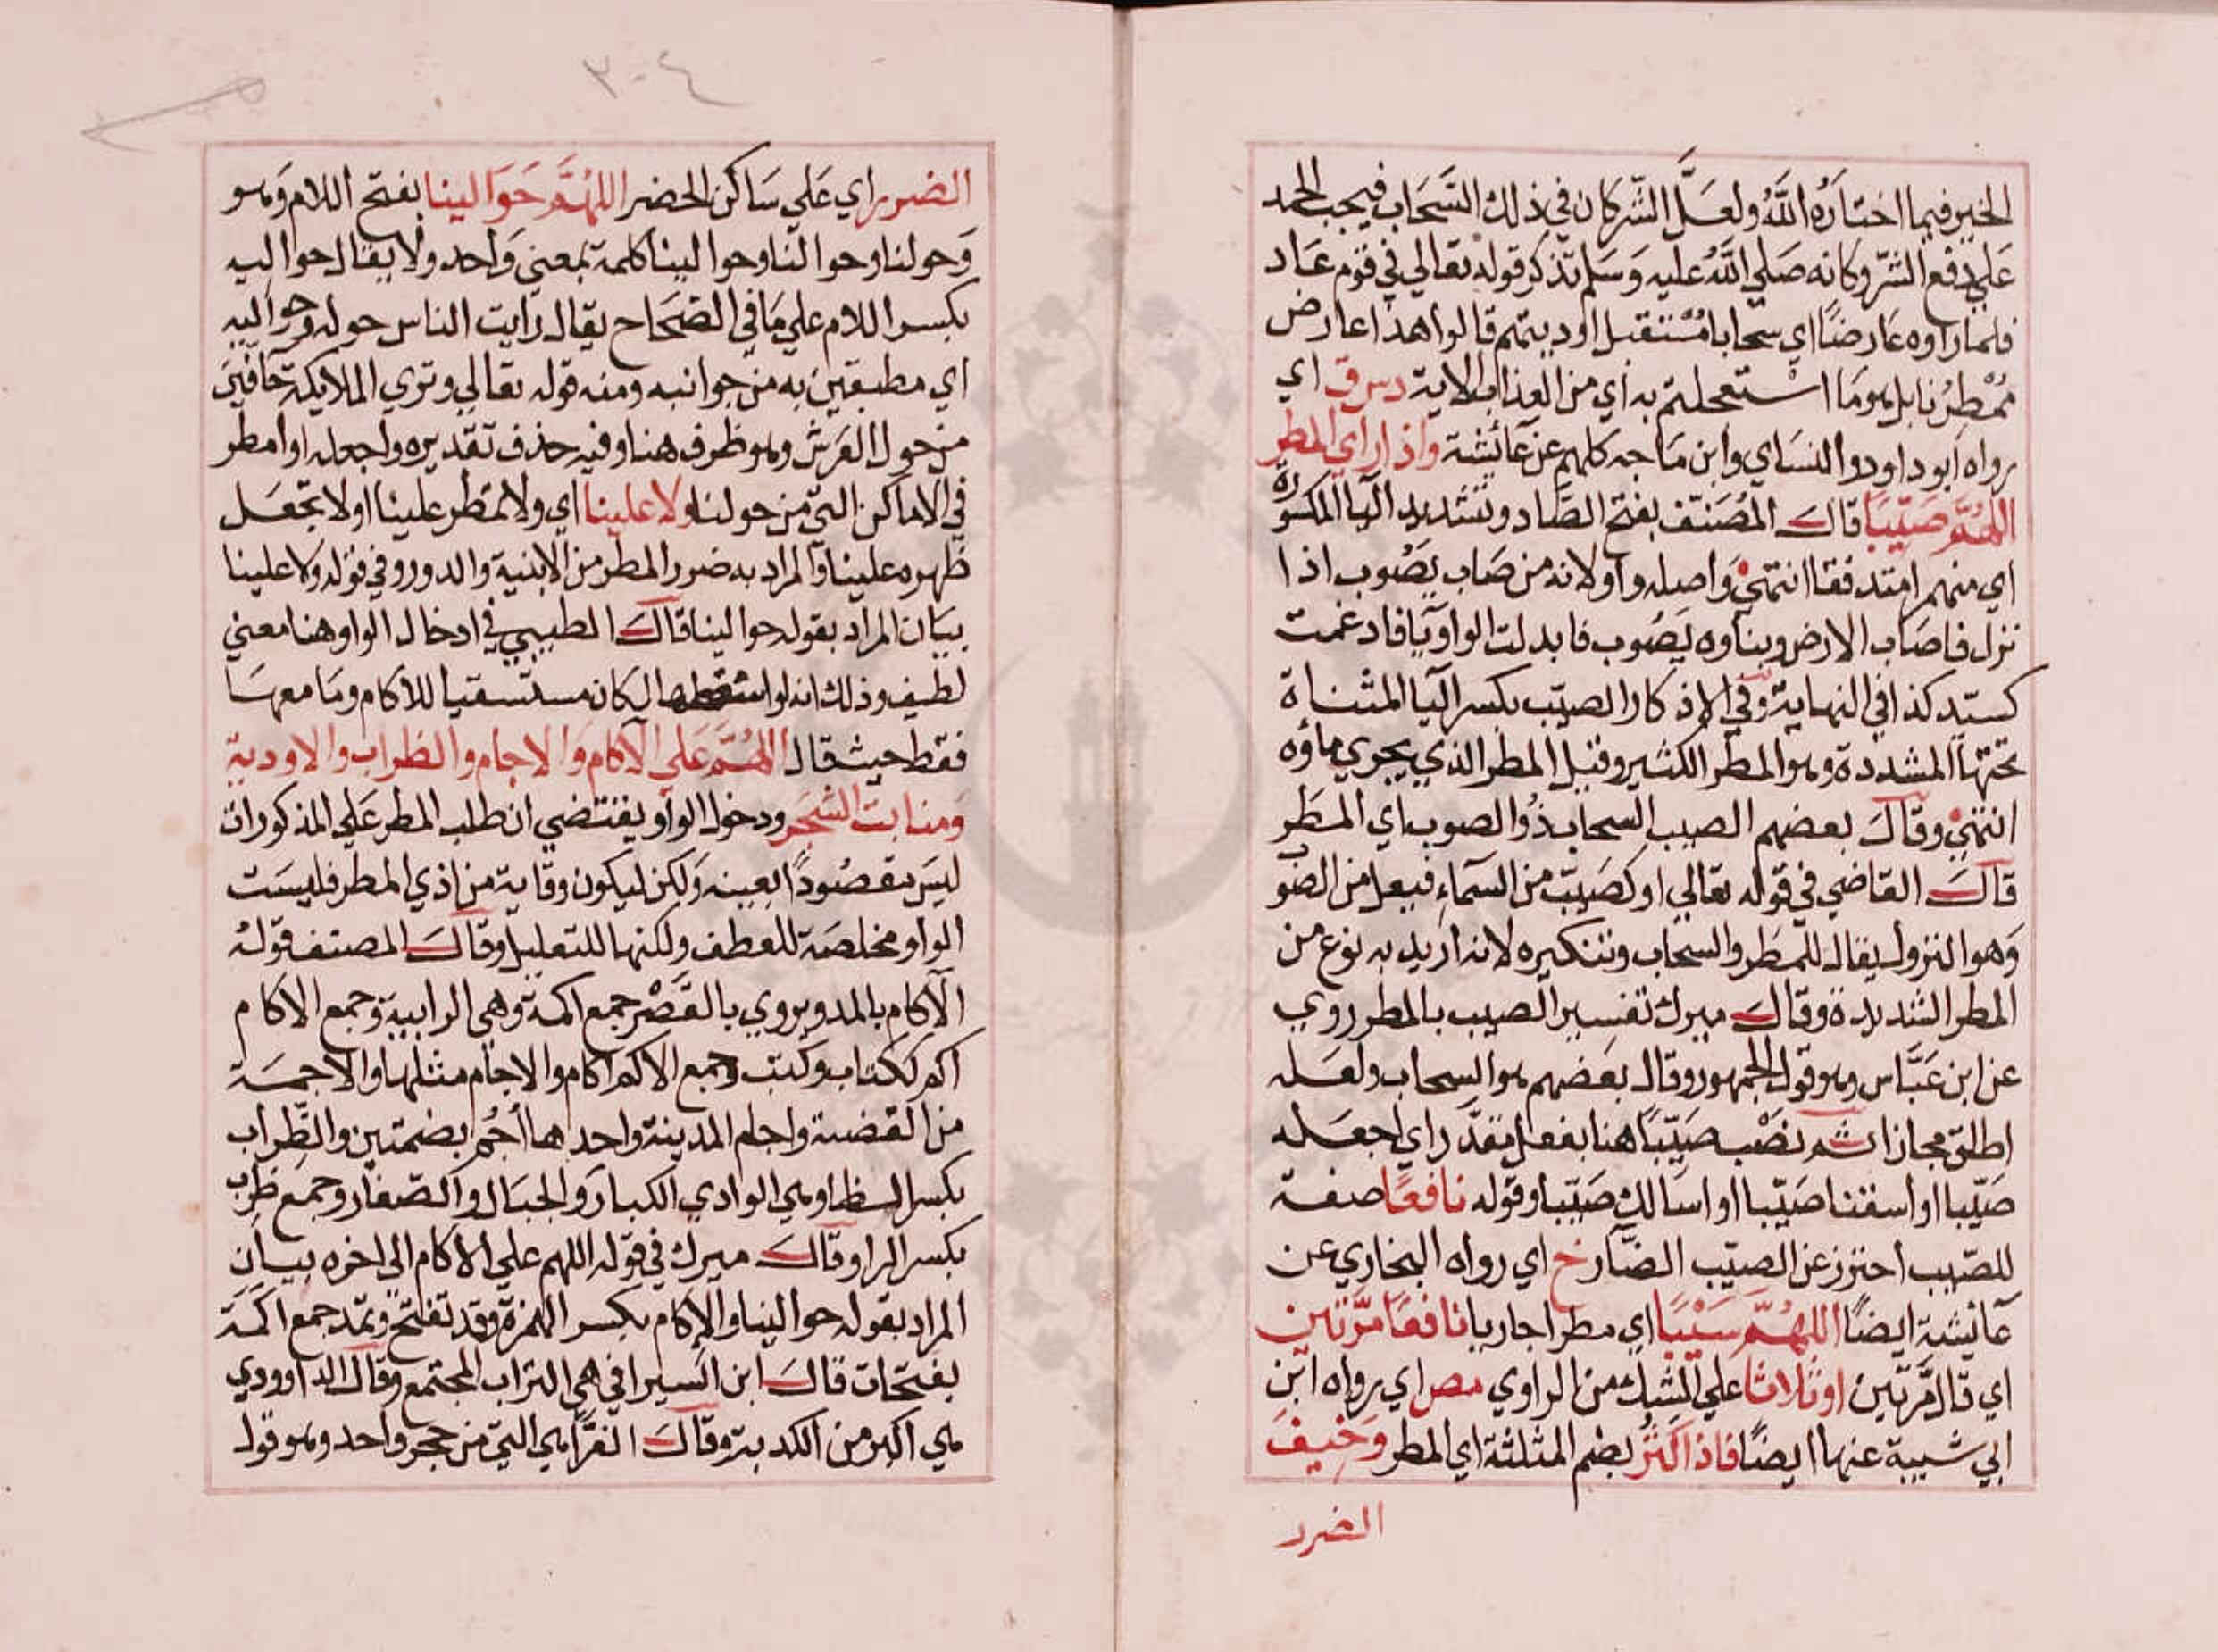 الخير فيما اختاره الله ولعل الشر كان في ذلك السحاب فيجب الحمد
علي دفع الشر وكانه صلي الله عليه وسلم تذكر قوله تعالي في قوم عاد
فلما راوه عارضا اي سحابا مستقبل اوديتهم قالوا هذا عارض
ممطرنا بل هو ما استعجلتم به اي من العذاب الاية دس ق اي
رواه ابو داود والنساي وابن ماجه كلهم عن عائشة واذا راي المطر
اللهم صيبا قال المصنف بفتح الصاد وتشديد اليا المكسورة
اي منهمرا متدفقا انتهي واصله واو لانه من صاب يصوب اذا
نزل فاصاب الارض وبناوه يصوب فابدلت الواو يا فادغمت
كسيد كذا في النهاية وفي الاذكار الصيب بكسر اليا المثناة
تحتها المشددة وهو المطر الكثير وقيل المطر الذي يجري ماؤه
انتهي وقال بعضهم الصيب السحاب ذو الصوب اي المطر
قال القاضي في قوله تعالي او كصيب من السماء فيعل من الصوب
وهو النزول يقال للمطر والسحاب وتنكيره لانه اريد به نوع من
المطر الشديدة وقال ميرك تفسير الصيب بالمطر روي
عن ابن عباس وهو قول الجمهور وقال بعضهم هو السحاب ولعله
اطلق مجازا ثم نصب صيبا هنا بفعل مقدر اي اجعله
صيبا او اسقنا صيبا او اسالك صيبا وقوله نافعا صفة
للصيب احترز عن الصيب الضار خ اي رواه البخاري عن
عائشة ايضا اللهم سيبا اي مطرا جاريا نافعا مرتين
اي قال مرتين او ثلاثا علي الشك من الراوي مص اي رواه ابن
ابي شيبة عنها ايضا فاذا كثر بضم المثلثة اي المطر وخيف
الضرر
٣٠٤
الضرر اي علي ساكن الحضر اللهم حوالينا بفتح اللام وهو
وحولنا وحوالنا وحوالينا كلمة بمعني واحد ولا يقال حواليه
بكسر اللام علي ما في الصحاح يقال رايت الناس حوله وحواليه
اي مطبقين به من جوانبه ومنه قوله تعالي وتري الملايكة حافين
من حول العرش وهو ظرف هنا وفيه حذف تقديره واجعله او امطر
في الاماكن التي من حولنا ولا علينا اي ولا تمطر علينا او لا تجعل
ظهره علينا والمراد به ضرر المطر من الابنية والدور وفي قوله ولا علينا
بيان المراد بقوله حوالينا قال الطيبي في ادخال الواو هنا معني
لطيف وذلك انه لو اسقطها لكان مستسقيا للاكام وما معها
فقط حيث قال اللهم علي الآكام والاجام والظراب والاودية
ومنابت الشجر ودخول الواو يقتضي ان طلب المطر علي المذكورات
ليس مقصودا لعينه ولكن ليكون وقاية من اذي المطر فليست
الواو مخلصة للعطف ولكنها للتعليل وقال المصنف قوله
الآكام بالمد ويروي بالقصر جمع اكمة وهي الرابية وجمع الاكام
اكم ككتاب وكتب وجمع الاكم اكام والاجام مثلها والاجمة
من القصبة واجام المدينة واحدها أجم بضمتين والظراب
بكسر الظا وهي الوادي الكبار والجبال والصغار وجمع ظرب
بكسر الرا وقال ميرك في قوله اللهم علي الاكام الى اخره بيان
المراد بقوله حوالينا والإكام بكسر الهمزة وقد تفتح وتمد جمع اكمة
بفتحات قال ابن السيرافي هي التراب المجتمع وقال الداوودي
هي اكبر من الكدية وقال القزا هي التي من حجر واحد وهو قول